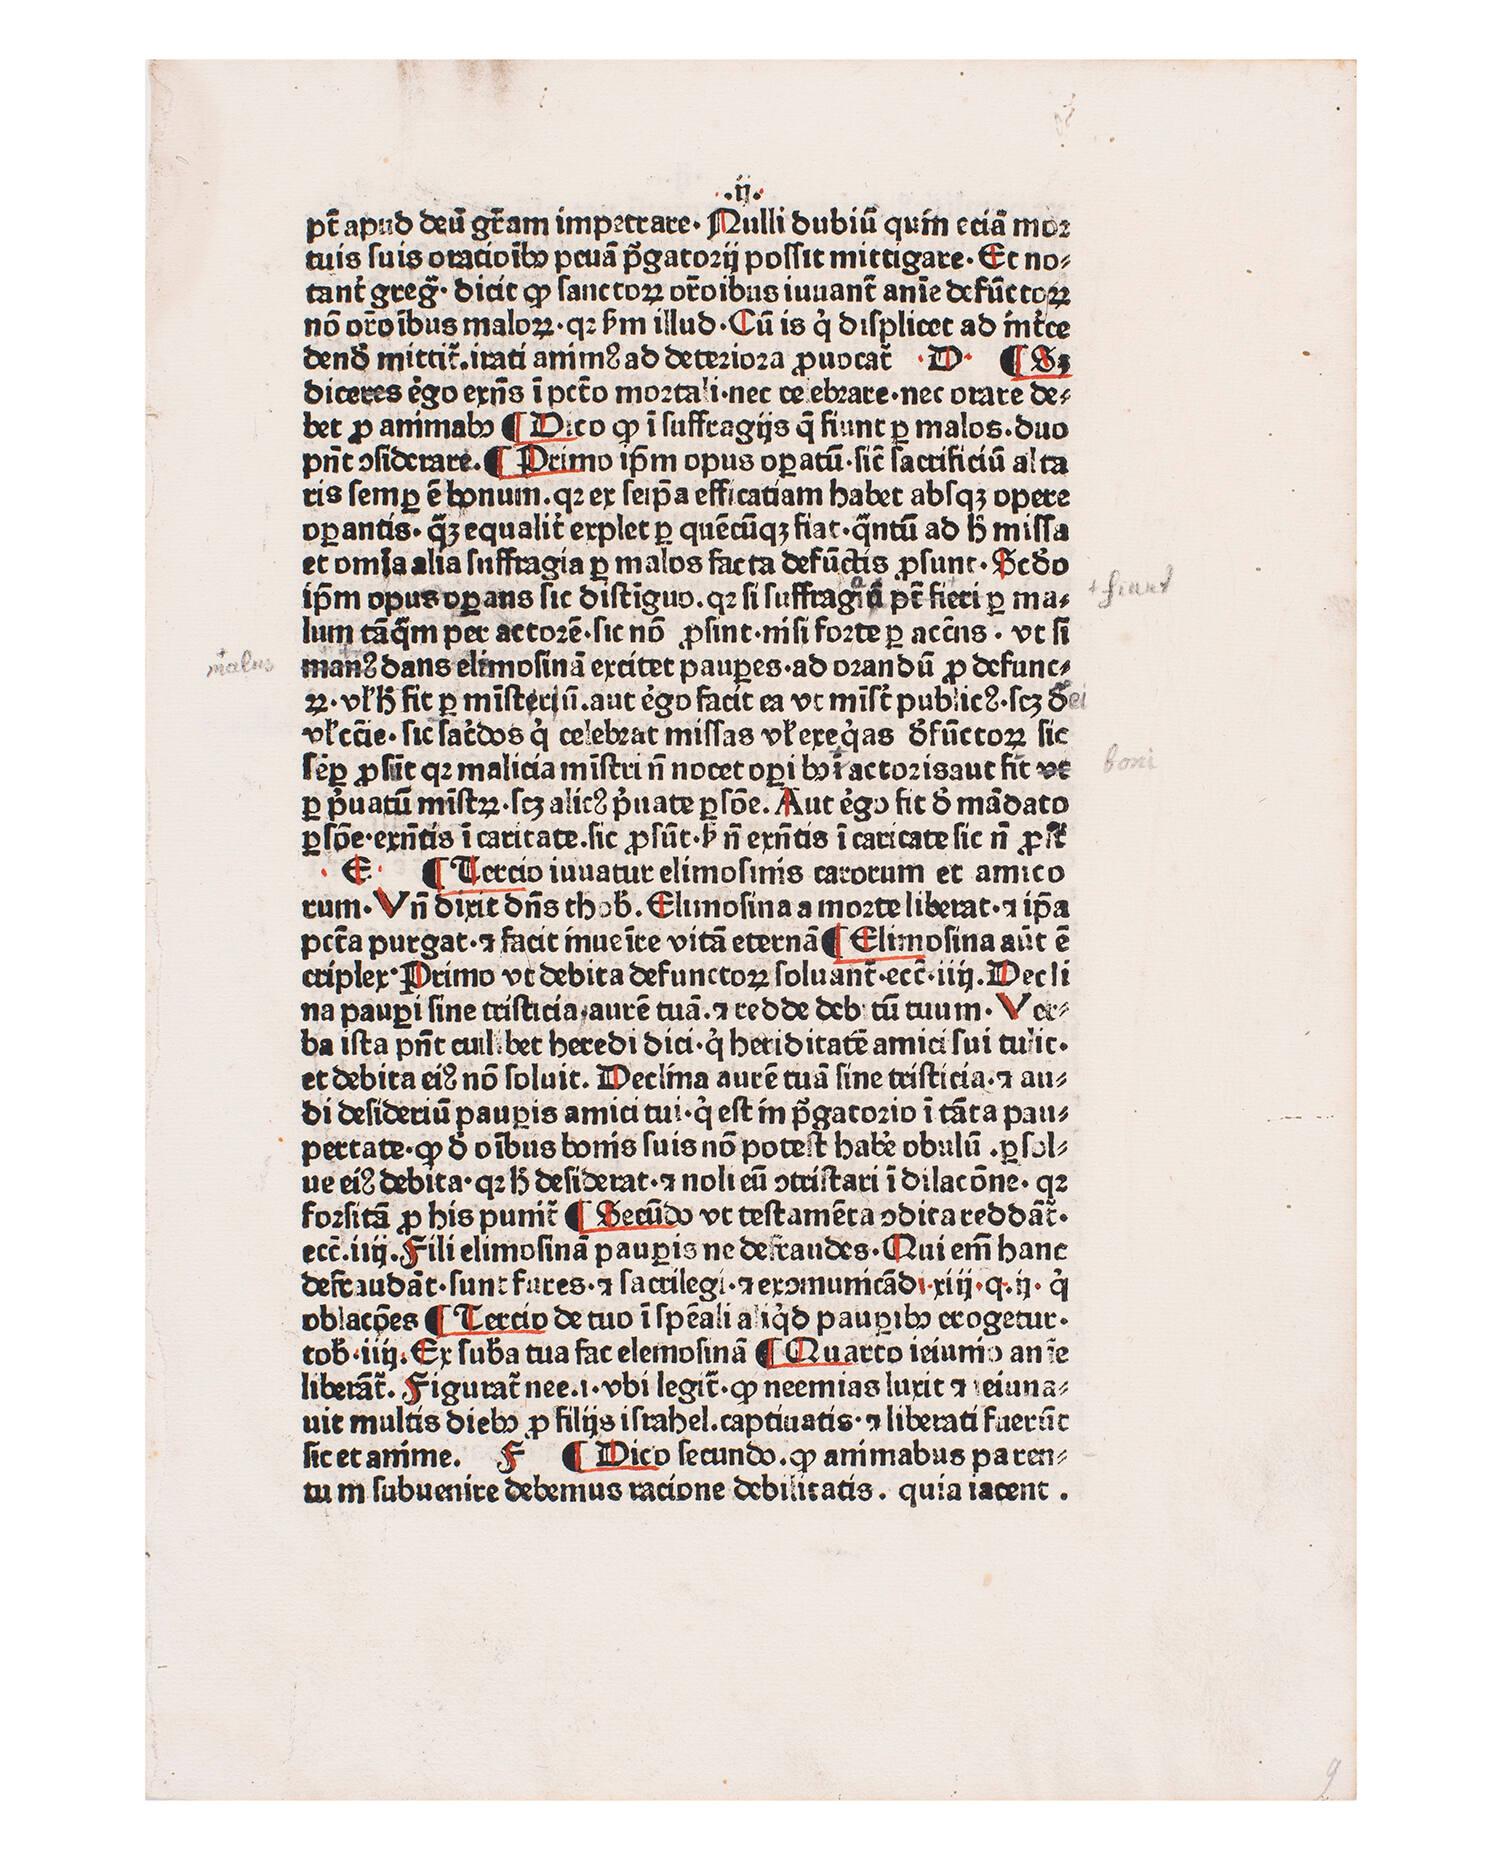 .ij.
pt̄ apud deū gr̄am impetrare. Nulli dubiū quin eciā mor
tuis suis oracioībꝫ penā p̄gatorij possit mittigare. Et no⸗
tant̄ greḡ. dicit ꝙ sanctoꝝ or̄oibus iuuant̄ anīe defūctoꝝ
nō or̄oībus maloꝝ. qꝛ ẜm illud. Cū is q̇ displicet ad int̄ce
dend̄ mittit̄. irati animꝰ ad deteriora ꝓuocat̄ .D. ¶ Sꝫ
diceres ėgo exn̄s ī pctō mortali. nec celebrare. nec orare de⸗
bet ꝓ animabꝫ ¶ Dico ꝙ ī suffragijs q̄ fiunt ꝑ malos. duo
pn̄t ꝯsiderare. ¶ Primo ip̄m opus oꝑatū. sic̄ sacrificiū alta
ris semꝑ ē bonum. qꝛ ex seip̄a efficatiam habet absqꝫ opere
oꝑantis. q̄ꝫ equalit̄ explet ꝑ quēcūqꝫ fiat. q̄ntū ad h̄ missa
et omīa alia suffragia ꝑ malos facta defūctis ꝓsunt. Scd̄o
ip̄m opus oꝑans sic distīguo. qꝛ si suffragiū pt̄ fieri ꝑ ma⸗ + fiant
lum tāq̄m per actorē. sic nō ꝓsint. nisi forte ꝑ accn̄s. vt si
malus manꝰ dans elimosinā excitet pauꝑes. ad orandū ꝓ defunc⸗
ꝝ. vl̄ h̄ fit ꝑ mīsteriū. aut ėgo facit ea vt mīst̄ publicꝰ. scꝫ d̄ei
vl̄ ecc̄ie. sic sac̄dos q̇ celebrat missas vl̄ exeq̇as d̄functoꝝ sic
sēꝑ ꝓsūt qꝛ malicia mīstri n̄ nocet oꝑi bꝫ ī actoris aut fit vt boni
ꝑ p̄uatū mīstꝝ. scꝫ alicꝰ p̄uate ꝑsōe. Aut ėgo fit d̄ mādato
ꝑsōe. exn̄tis ī caritate. sic ꝓsūt. ẜ n̄ exn̄tis ī caritate sic n̄ ꝓsūt
. E . ¶ Tercio iuuatur elimosinis carorum et amico
rum. Vn̄ dixit dn̄s thob̄. Elimosina a morte liberat. ⁊ ip̄a
pctā purgat. ⁊ facit inueīre vitā eternā ¶ Elimosina aūt ē
triplex. Primo vt debita defunctoꝝ soluant̄. ecc̄. iiij. Decli
na pauꝑi sine tristicia. aurē tuā. ⁊ redde debitū tuum. Ver⸗
ba ista pn̄t cuilibet heredi dici. q̇ heriditatē amici sui tulit.
et debita eiꝰ nō soluit. Declina aurē tuā sine tristicia. ⁊ au⸗
di desideriū pauꝑis amici tui. q̇ est in p̄gatorio ī tāta pau⸗
pertate. ꝙ d̄ oībus bonis suis nō potest habe̍ obulū. ꝑsol⸗
ue eiꝰ debita. qꝛ h̄ desiderat. ⁊ noli eū ꝯtristari ī dilacōne. qꝛ
forsitā ꝓ his punit̄ ¶ Secūdo vt testamēta ꝯdita reddāt̄.
ecc̄. iiij. Fili elimosinā pauꝑis ne defraudes. Qui em̄ hanc
defraudāt. sunt fures. ⁊ sacrilegi. ⁊ exꝯmunicādi. xiij. q. ij. q̇
oblacōes ¶ Tercio de tuo ī spēali aliq̇d pauꝑibꝫ erogetur.
tob̄. iiij. Ex sub̄a tua fac elemosinā ¶ Quarto ieiunio anīe
liberāt̄. Figurat̄ nee. i. vbi legit̄. ꝙ neemias luxit ⁊ ieiuna⸗
uit multis diebꝫ ꝓ filijs israhel. captiuatis. ⁊ liberati fuerūt
sic et anime. F ¶ Dico secundo. ꝙ animabus paren⸗
tum subuenire debemus racione debilitatis. quia iacent .
9